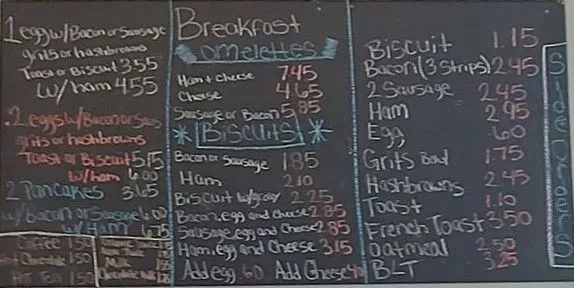 1 egg w/Bacon or Sausage
grits or hashbrowns
Toast or Biscuit 3.55
w/ham 4.55
2 eggs w/Bacon or Saus
grits or hashbrowns
Toast or Biscuit 5.15
w/ham 6.00
2 Pancakes 3.65
w/Bacon or Sausage 6.00
w/Ham 6.75
Coffee 1.50
Hot Chocolate 1.50
Hot Tea 1.50
Juice
Milk
Chocolate Milk
Breakfast
omelettes
Ham + Cheese 7.45
Cheese 4.65
Sausage or Bacon 5.85
Biscuits
Bacon or Sausage 1.85
Ham 2.10
Biscuit w/gravy 2.25
Bacon, egg and cheese 2.85
Sausage, egg and cheese 2.85
Ham, egg and Cheese 3.15
Add egg .60 Add Cheese .40
Biscuit 1.15
Bacon (3 strips) 2.45
2 Sausage 2.45
Ham 2.95
Egg .60
Grits Bowl 1.75
Hashbrowns 2.45
Toast 1.10
French Toast 3.50
oatmeal 2.50
BLT 3.25
Side Orders